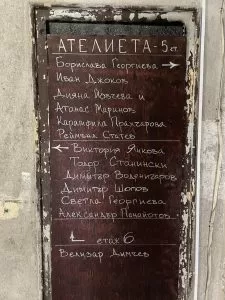 АТЕЛИЕТА - 5 ет.
Борислава Георгиева →
Иван Джоков
Диана Йовчева и
Атанас Маринов
Карамфила Прахчарова
Реймънд Статев
← Виктория Янкова
Тодор Станински
Димитър Воденичаров
Димитър Шопов
Светла Георгиева
Александър Панайотов
етаж 6
Велизар Димчев